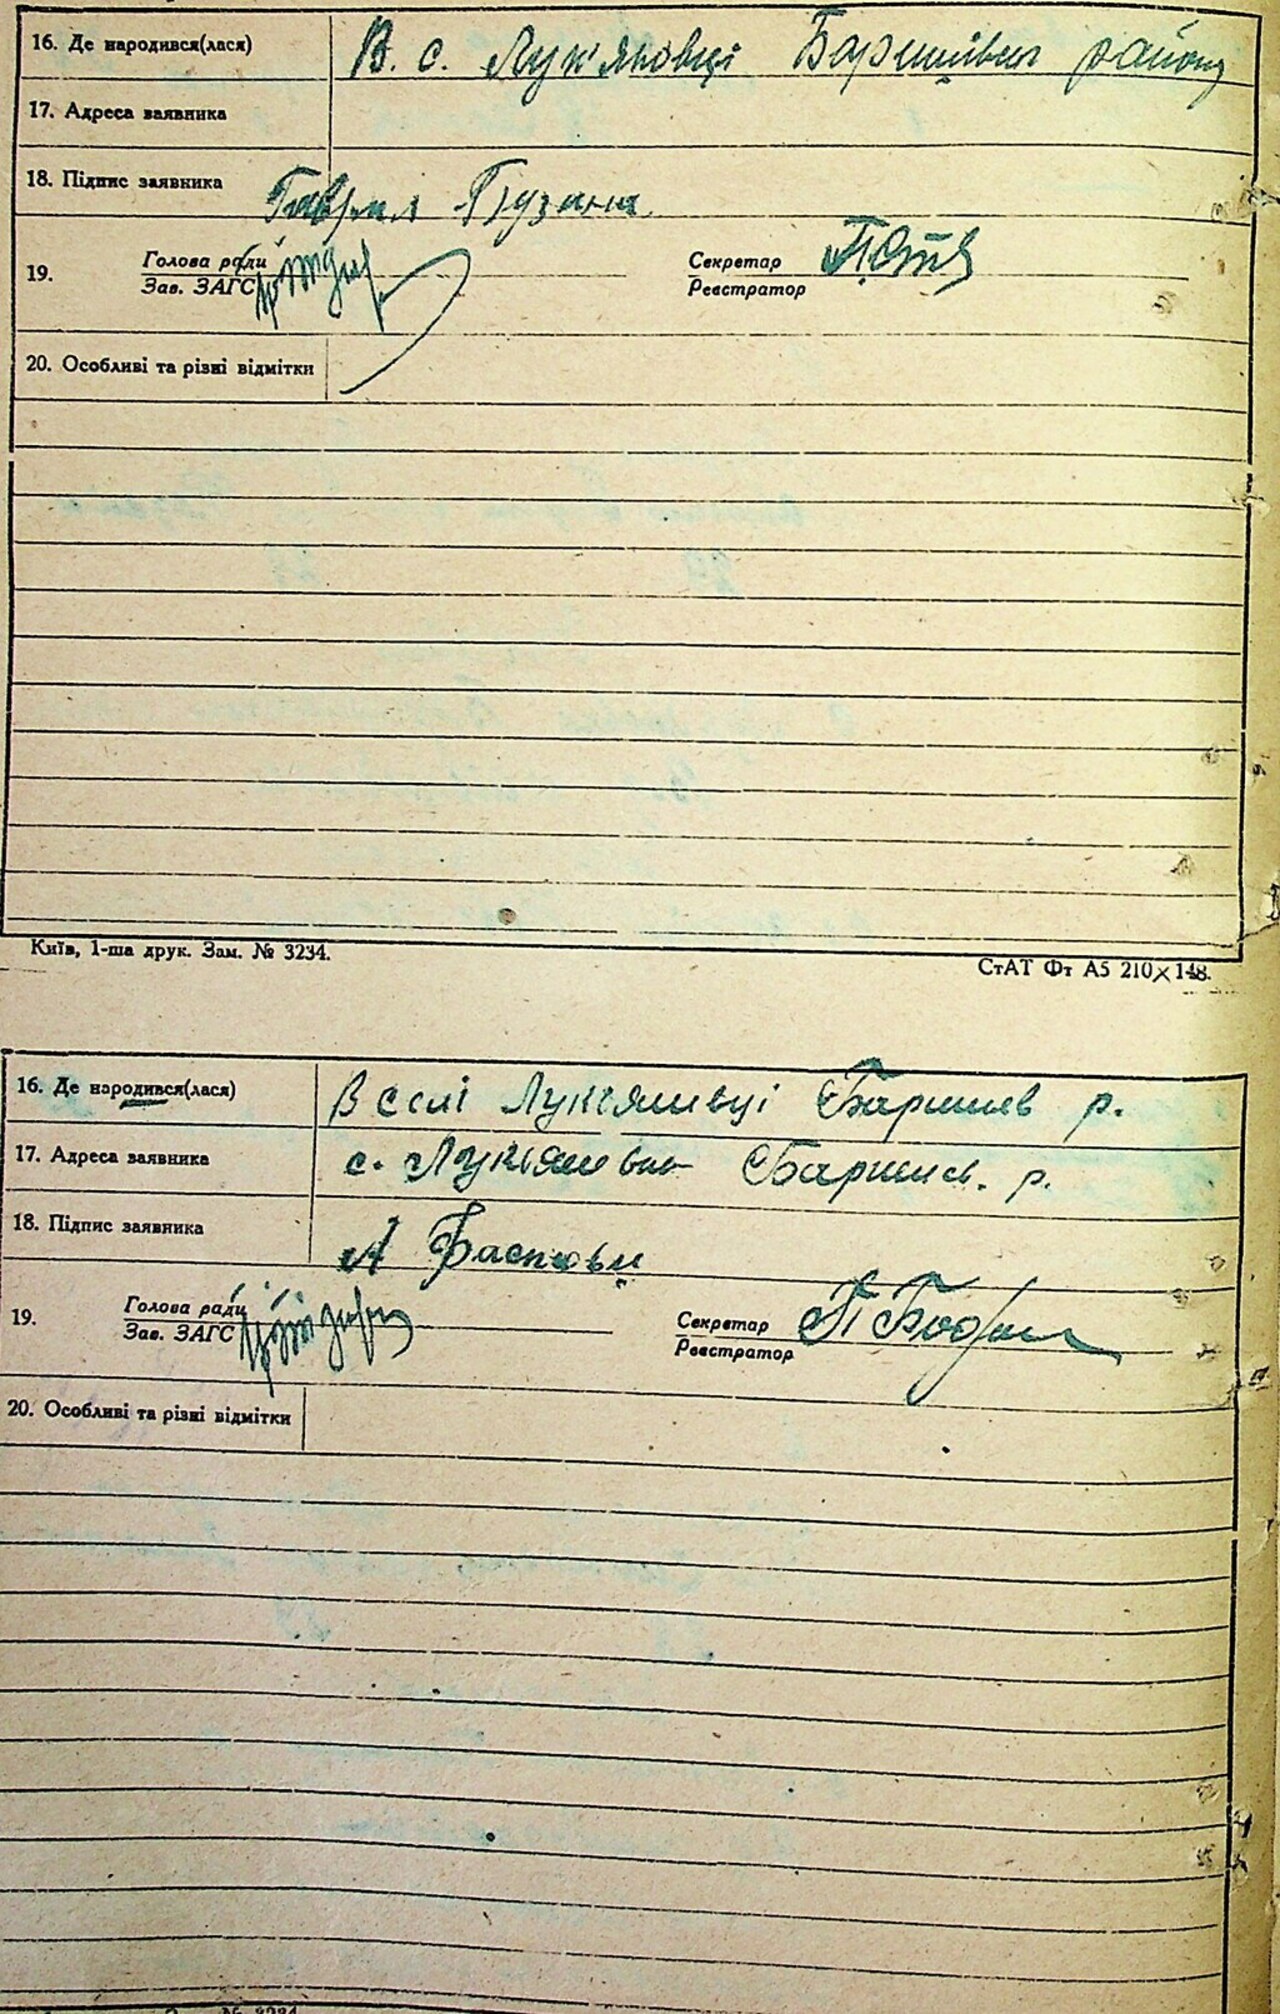 16. Де народився(лася) В. с. Лук'яновці Баришівсь району
17. Адреса заявника
18. Підпис заявника Гаврил Пузани
19. Голова ради Секретар
Зав. ЗАГС Реєстратор
20. Особливі та різні відмітки
Київ, 1-ша друк. Зам. № 3234.
СтАТ Фт А5 210×148.
16. Де народився(лася) В селі Баришев р.
17. Адреса заявника с. Баришев. р.
18. Підпис заявника А
19. Голова ради Секретар
Зав. ЗАГС Реєстратор
20. Особливі та різні відмітки
№ 3234